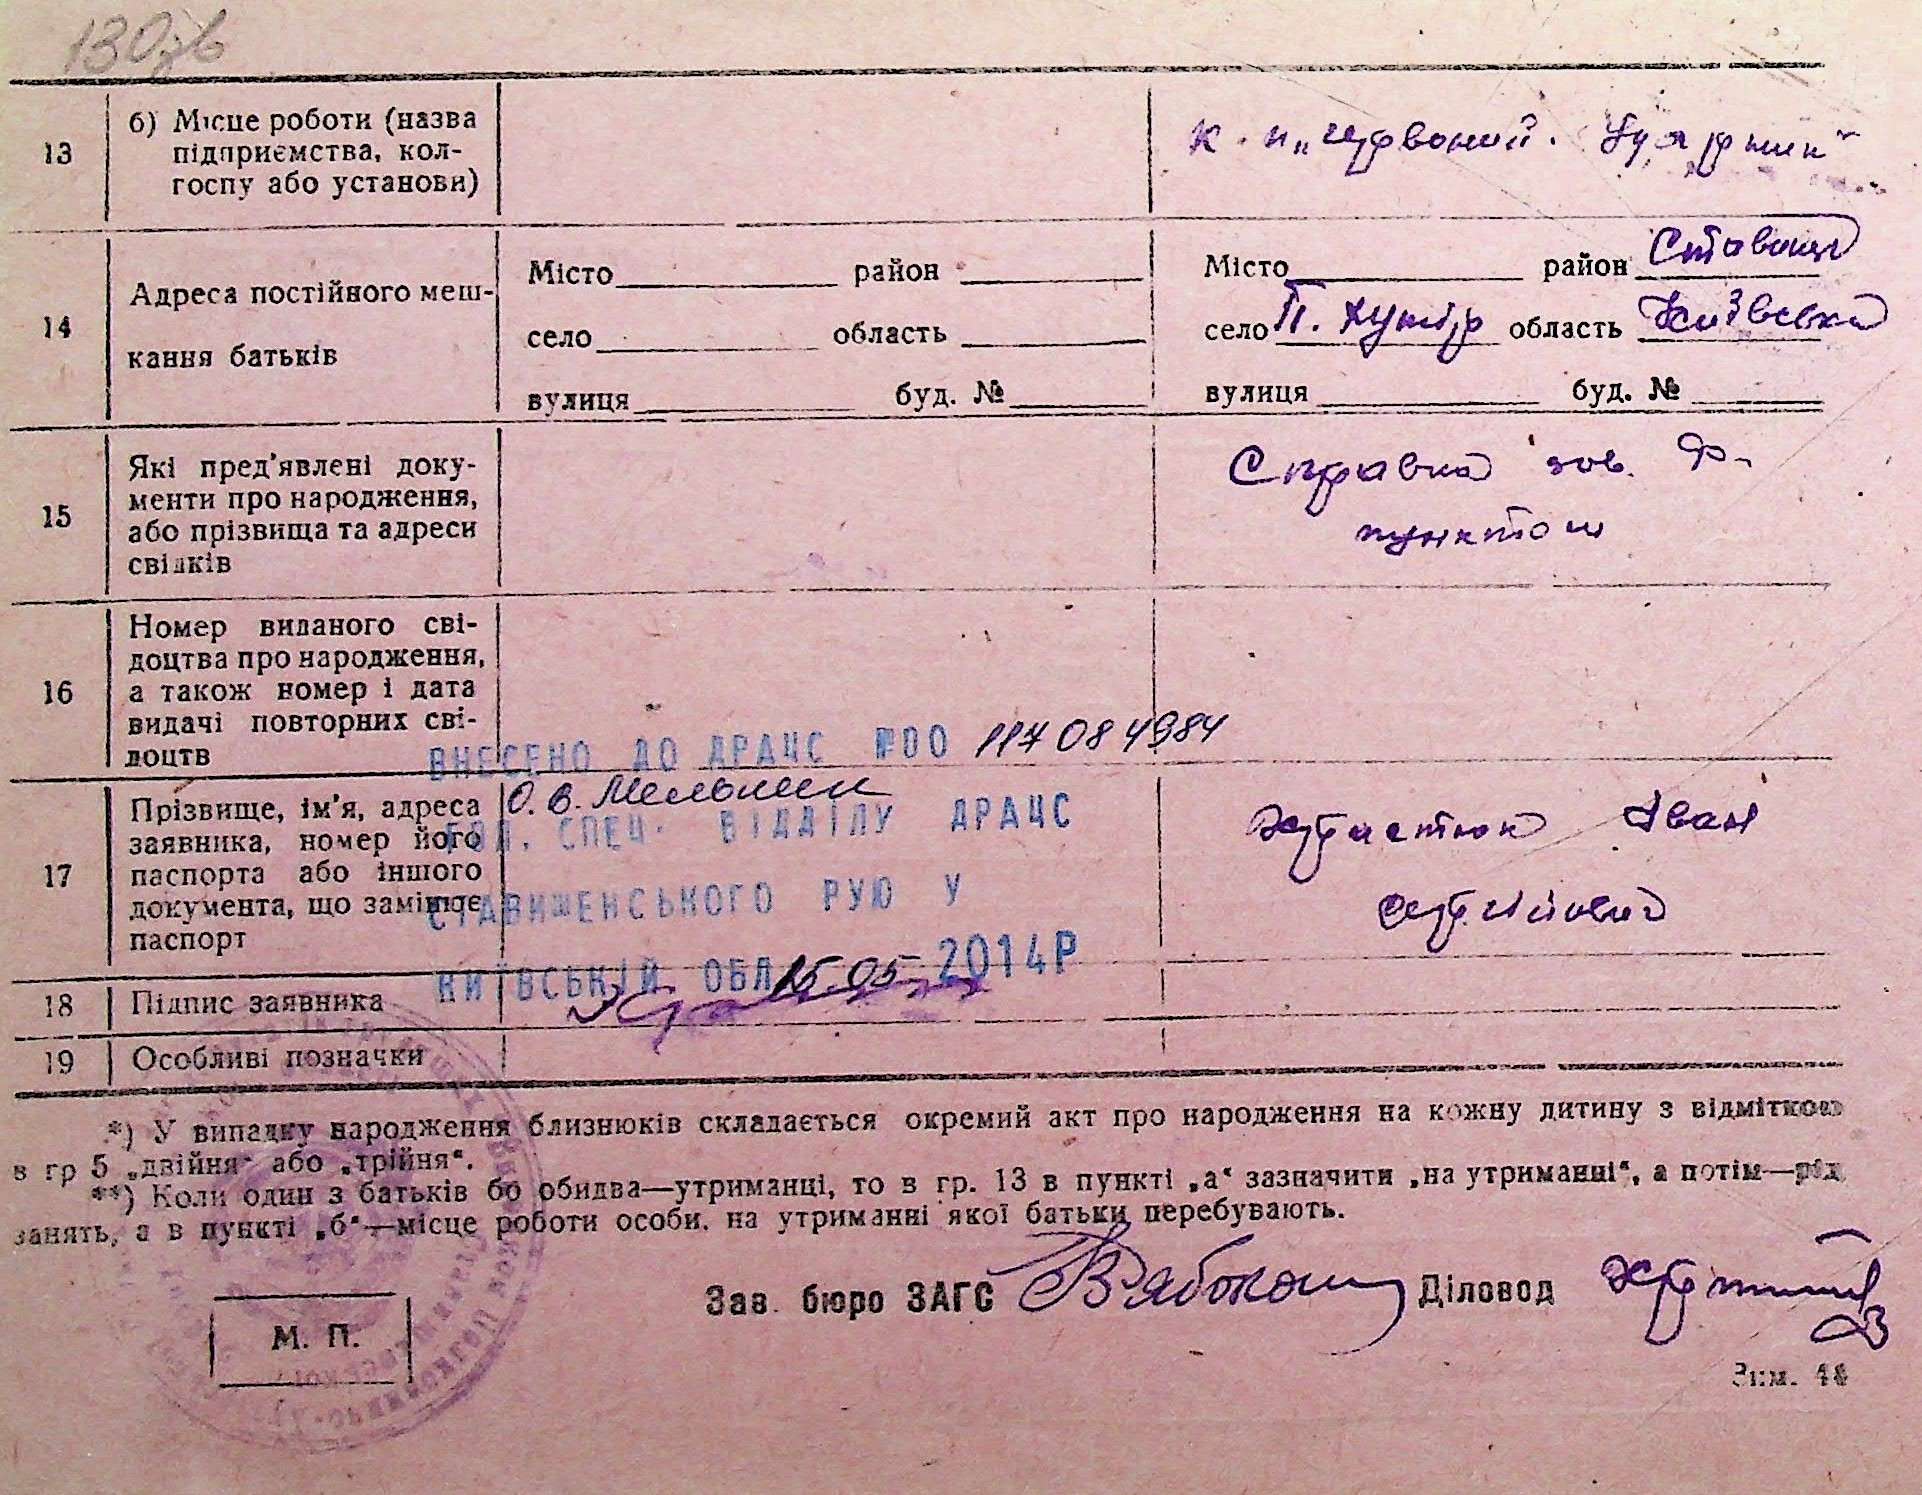 130зв
13
б) Місце роботи (назва
підприємства, кол-
госпу або установи)
к-п „Червоний Ударник"
14
Адреса постійного меш-
кання батьків
Місто район
село область
вулиця буд. №
Місто район Ставище
село П. Хутір область Київська
вулиця буд. №
15
Які пред'явлені доку-
менти про народження,
або прізвища та адреси
свідків
Справка зов. Ф-
пунктом
16
Номер виданого сві-
доцтва про народження,
а також номер і дата
видачі повторних сві-
доцтв
ВНЕСЕНО ДО ДРАЦС №00 117084984
О. В. Мельник
ГОЛ. СПЕЦ. ВІДДІЛУ ДРАЦС
СТАВИЩЕНСЬКОГО РУЮ У
КИЇВСЬКІЙ ОБЛ 15.05 2014Р
17
Прізвище, ім'я, адреса
заявника, номер його
паспорта або іншого
документа, що замінює
паспорт
Христюк Іван
18
Підпис заявника
19
Особливі позначки
*) У випадку народження близнюків складається окремий акт про народження на кожну дитину з відміткою
в гр 5 „двійня" або „трійня".
**) Коли один з батьків бо обидва—утриманці, то в гр. 13 в пункті „а" зазначити „на утриманні", а потім—рід
занять, а в пункті „б"—місце роботи особи. на утриманні якої батьки перебувають.
Зав. бюро ЗАГС Діловод
М. П.
Зим. 48